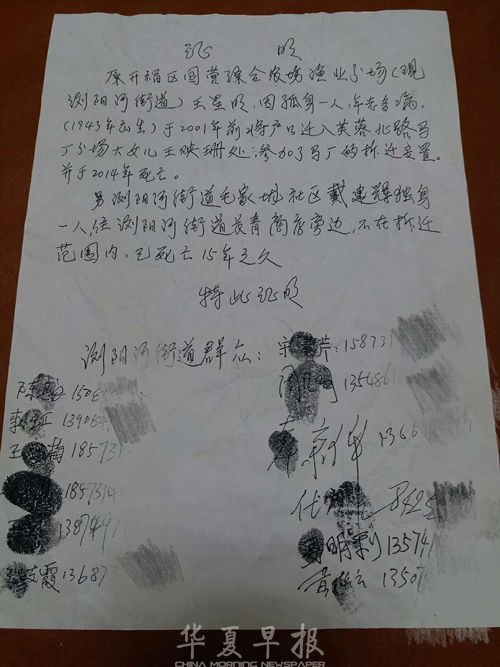 证 明
原开福区国营综合农场渔业分场(现
浏阳河街道)王星明,因孤身一人,年老多病,
(1943年出生)于2001年前将户口迁入芙蓉北路马
厂分场大女儿王映珊处;参加了马厂的拆迁安置。
并于2014年死亡。
另浏阳河街道毛家垅社区戴建辉独身
一人,住浏阳河街道长青商店旁边,不在拆迁
范围内,已死亡15年之久
特此证明
浏阳河街道群众:
158731
陈 1508
135486
139084
136
王 南 185731
1857314
1387497
明利 13574
霞 136873
13507
华夏早报
CHINA MORNING NEWSPAPER